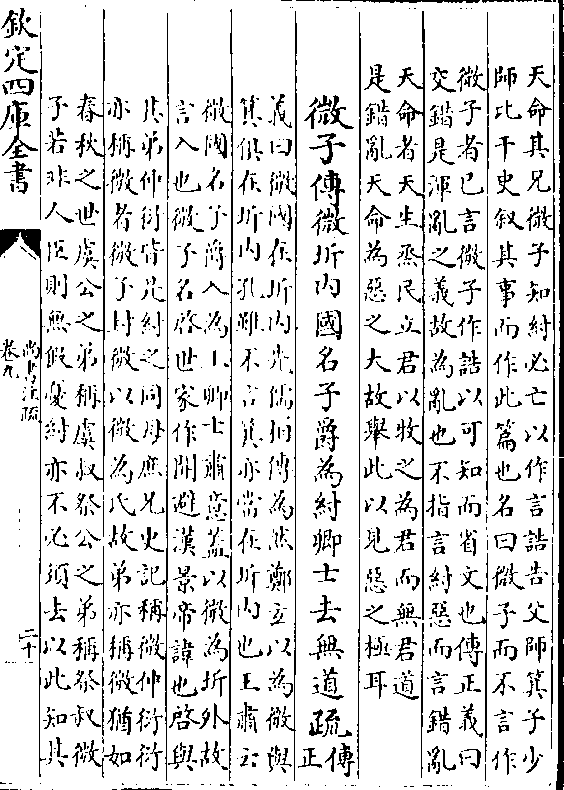 天命其兄微子知紂必亡以作言誥告父師箕子少
師比干史叙其事而作此篇也名曰微子而不言作
微子者已言微子作誥以可知而省文也傳正義曰
交錯是渾亂之義故為亂也不指言紂惡而言錯亂
天命者天生烝民立君以牧之為君而無君道
是錯亂天命為惡之大故舉此以見惡之極耳
微子傳微圻内國名子爵為紂卿士去無道疏傳
正
義曰微國在圻内先儒相傳為然鄭玄以為微與
箕俱在圻内孔雖不言箕亦當在圻内也王肅云
微國名子爵入為王卿士肅意蓋以微為圻外故
言入也微子名啓世家作開避漢景帝諱也啓與
其弟仲衍皆是紂之同母庶兄史記稱微仲衍衍
亦稱微者微子封微以微為氏故弟亦稱微猶如
春秋之世虞公之弟稱虞叔祭公之弟稱祭叔微
子若非人臣則無假憂紂亦不必須去以此知其
欽定四庫全書
尚書注疏
卷九
二十